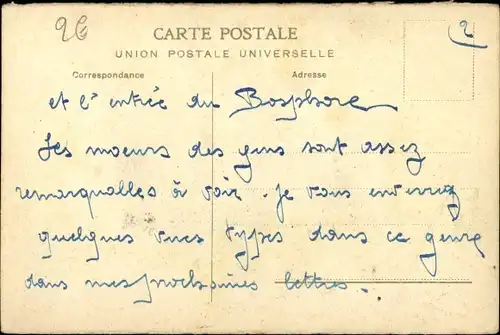 26
2
CARTE POSTALE
UNION POSTALE UNIVERSELLE
Correspondance
Adresse
et l'entrée du Bosphore
Les moeurs des gens sont assez
remarquables à voir. Je vous enverrai
quelques vues types dans ce genre
dans mes prochaines lettres.